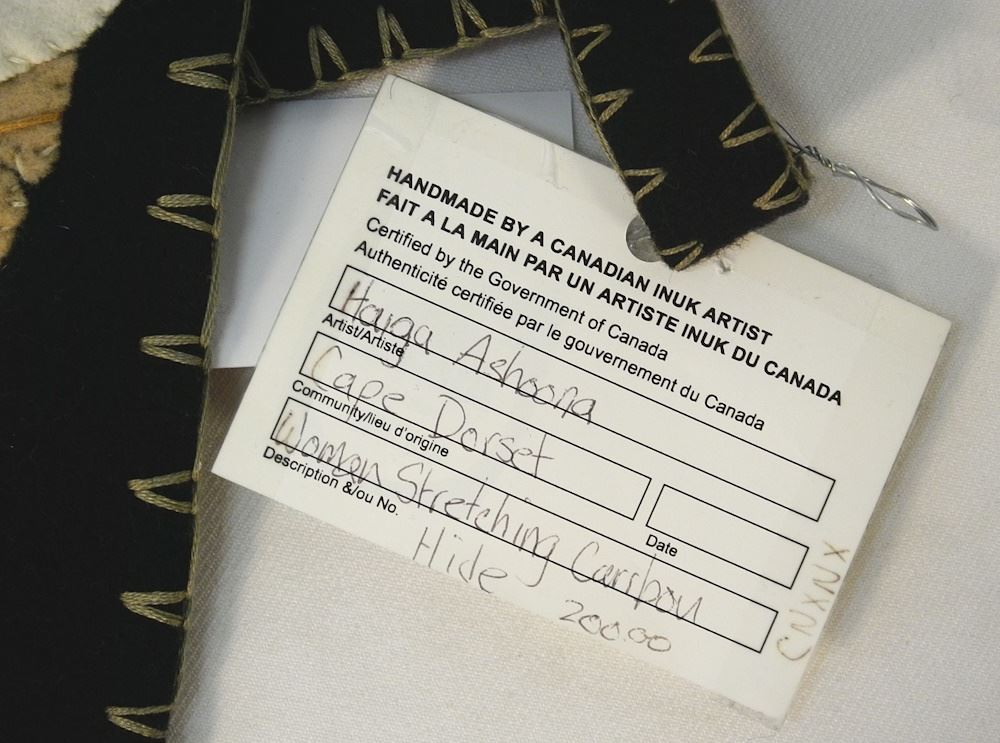 HANDMADE BY A CANADIAN INUK ARTIST
FAIT A LA MAIN PAR UN ARTISTE INUK DU CANADA
Certified by the Government of Canada
Authenticité certifiée par le gouvernement du Canada
Haiga Ashoona
Artist/Artiste
Cape Dorset
Community/lieu d'origine
Date
Woman Stretching Caribou
Description &/ou No.
Hide
200.00
CNXNX